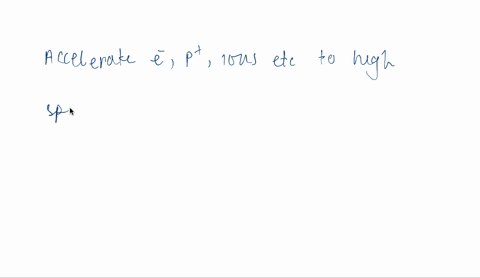 Accelerate ē, p⁺, ions etc to high
sp